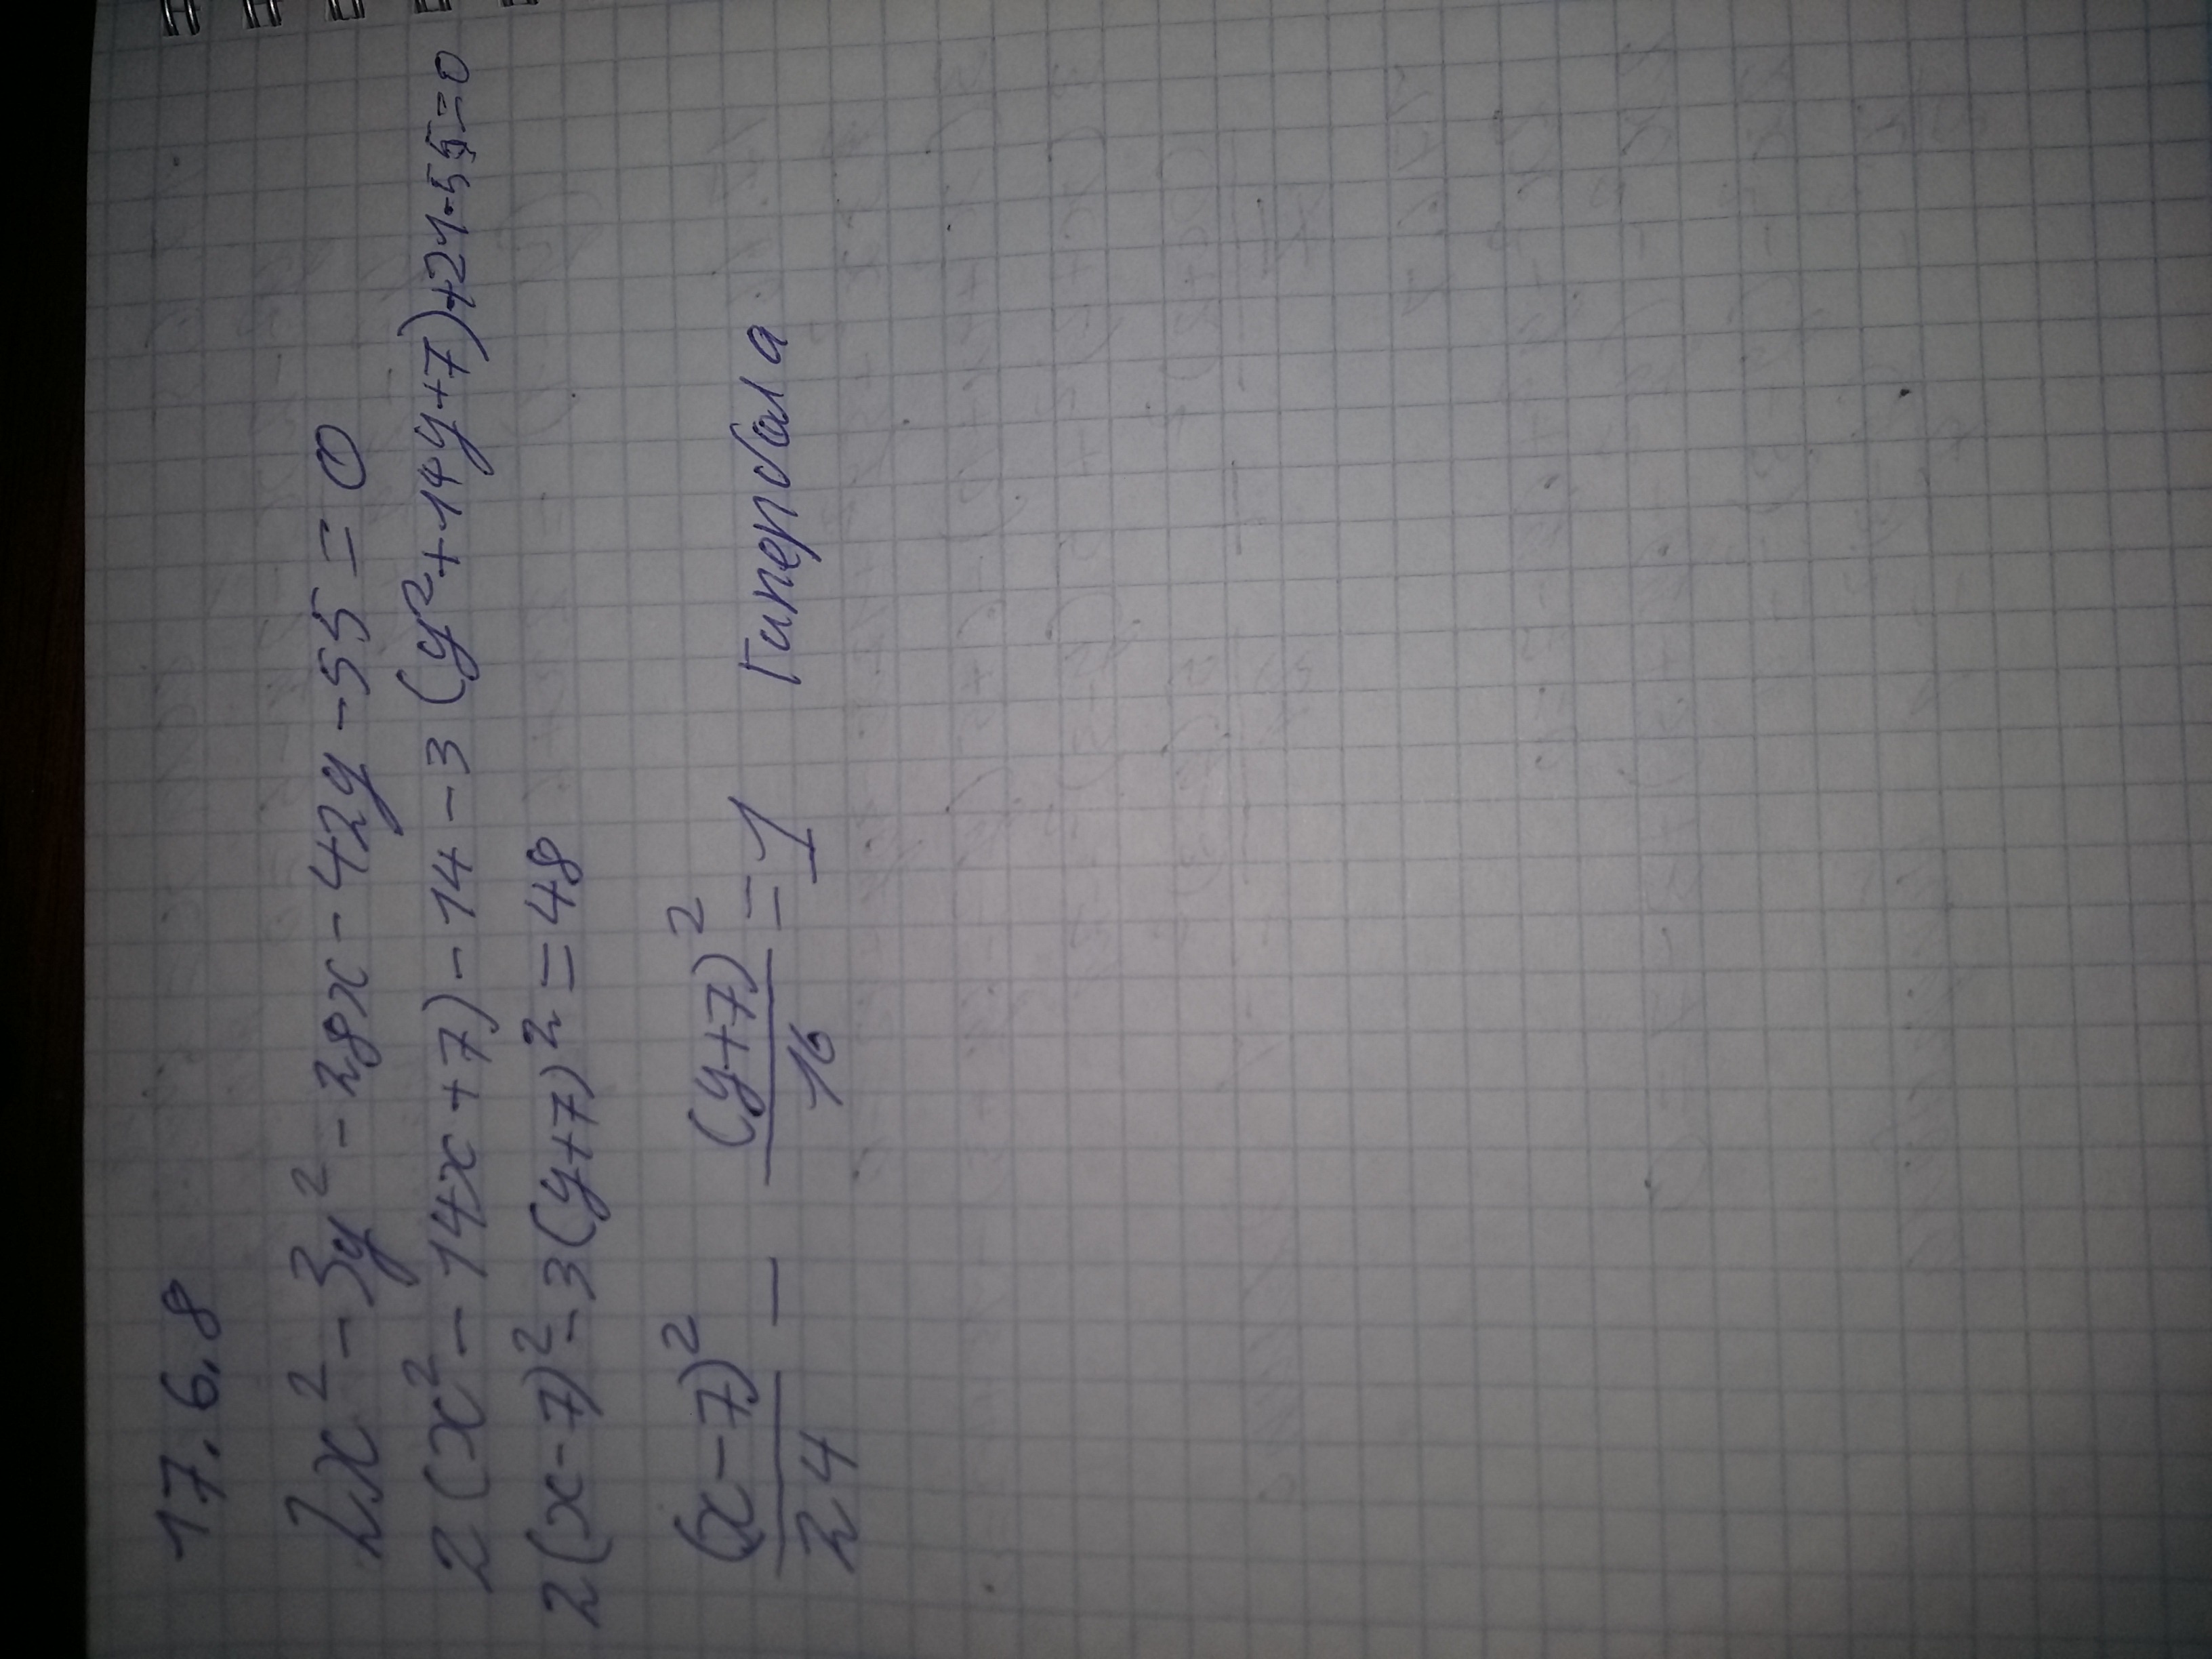 17.6.8
2x² - 3y² - 28x - 42y - 55 = 0
2(x² - 14x + 7) - 14 - 3(y² + 14y + 7) + 21 - 55 = 0
2(x - 7)² - 3(y + 7)² = 48
(x - 7)²/24 - (y + 7)²/16 = 1 Гипербола